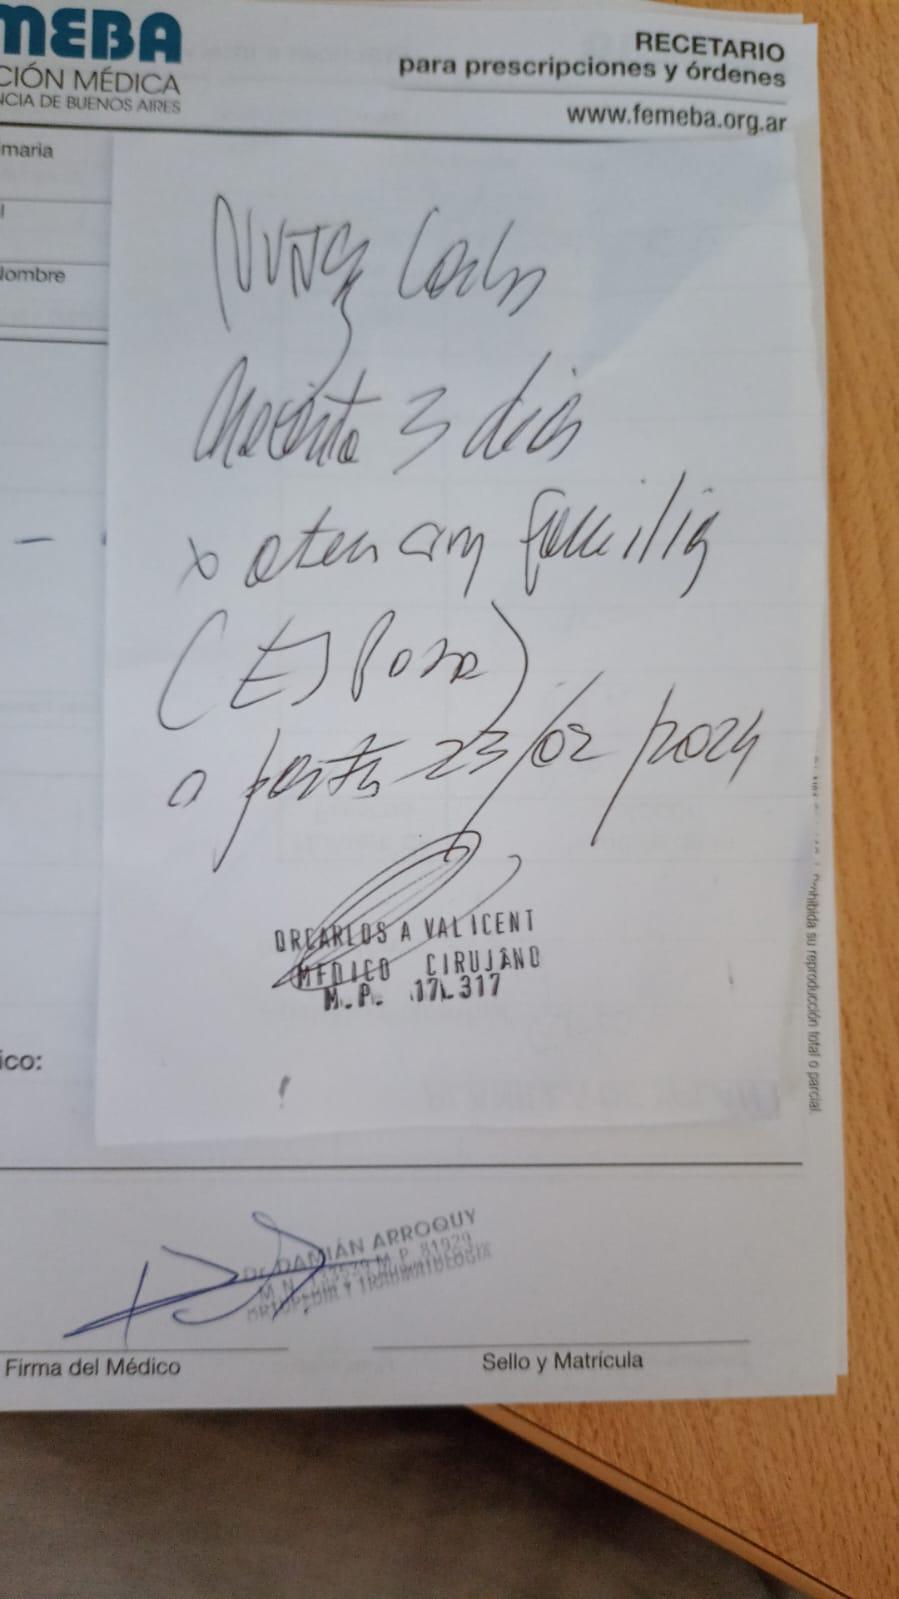 MEBA
CIÓN MÉDICA
NCIA DE BUENOS AIRES
RECETARIO
para prescripciones y órdenes
www.femeba.org.ar
maria
l
Nombre
Nuñez Carlos
Necesita 3 dias
x atencion familia
(Esposa)
a partir 23/02/2024
DR CARLOS A VALICENT
MEDICO CIRUJANO
M.P. 17.317
ico:
Prohibida su reproducción total o parcial.
Dr. DAMIÁN ARROQUY
M.P. 81929
ORTOPEDIA Y TRAUMATOLOGIA
Firma del Médico
Sello y Matrícula